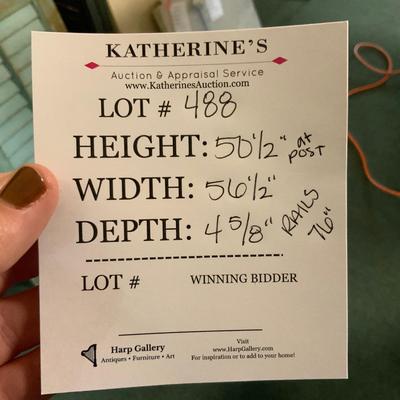 KATHERINE'S
Auction & Appraisal Service
www.KatherinesAuction.com
LOT # 488
HEIGHT: 50 1/2" at POST
WIDTH: 56 1/2"
DEPTH: 4 5/8"
RAILS 76"
LOT #
WINNING BIDDER
Harp Gallery
Antiques • Furniture • Art
Visit
www.HarpGallery.com
For inspiration or to add to your home!